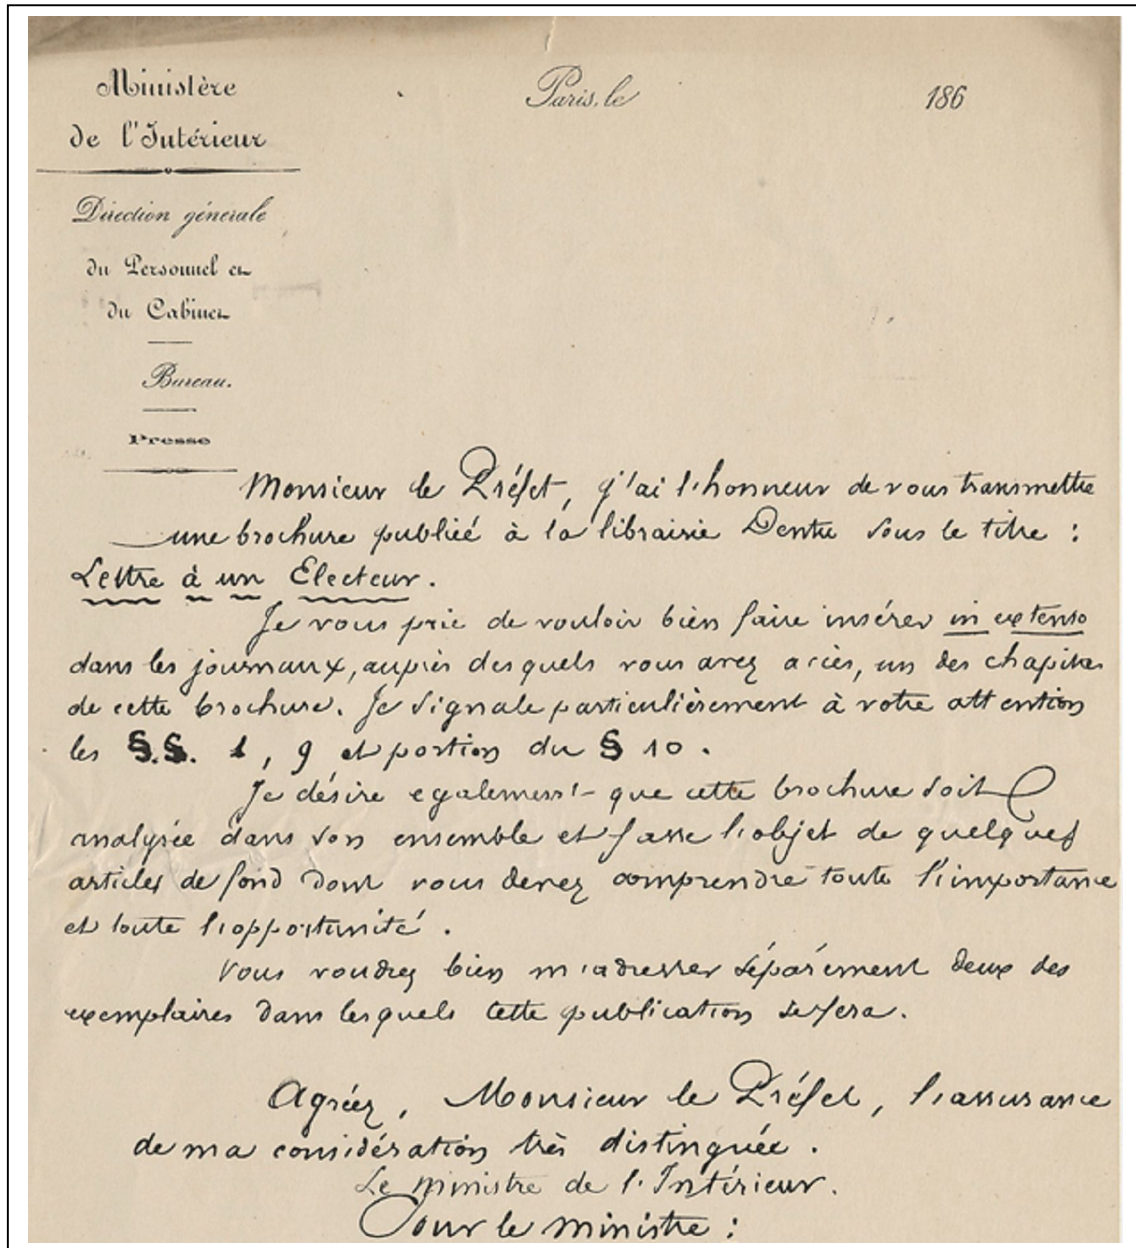 Ministère
de l'Intérieur
Paris, le
186
Direction générale
du Personnel et
du Cabinet
Bureau.
Presse
Monsieur le Préfet, j'ai l'honneur de vous transmettre
une brochure publiée à la librairie Dentu sous le titre :
Lettre à un Electeur.
Je vous prie de vouloir bien faire insérer in extenso
dans les journaux, auprès desquels vous avez accès, un des chapitres
de cette brochure. Je signale particulièrement à votre attention
les §.§. 1, 9 et portion du § 10.
Je désire egalement que cette brochure soit
analysée dans son ensemble et fasse l'objet de quelques
articles de fond dont vous devez comprendre toute l'importance
et toute l'opportunité.
Vous voudrez bien m'adresser séparément deux des
exemplaires dans lesquels cette publication se fera.
Agréez, Monsieur le Préfet, l'assurance
de ma considération très distinguée.
Le Ministre de l'Intérieur.
Pour le Ministre :